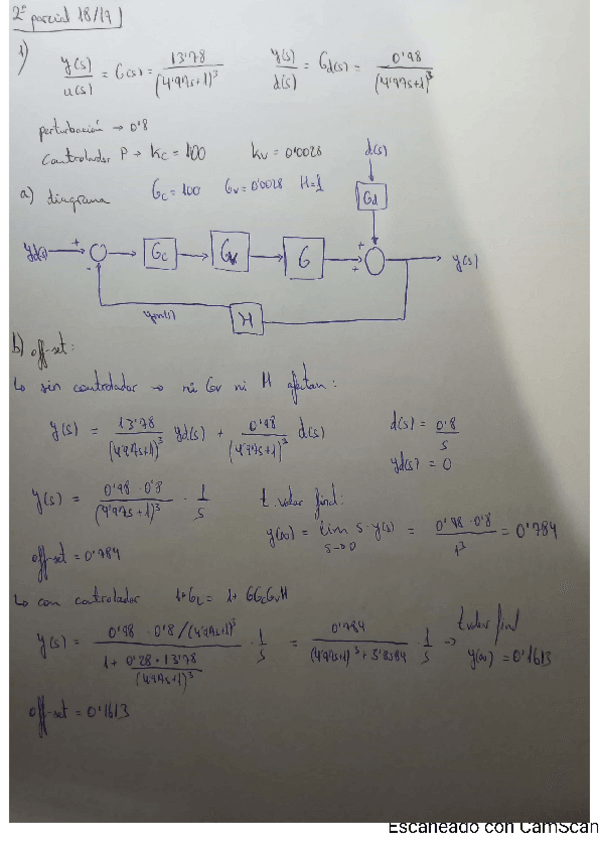 2º parcial 18/19
1) y(s)/u(s) = G(s) = 13'78/(4'97s+1)^3 y(s)/d(s) = Gd(s) = 0'98/(4'97s+1)^3
perturbación → 0'8
Controlador P → Kc = 100 Kv = 0'0028 d(s)
a) diagrama Gc = 100 Gv = 0'0028 H=1
Gd
yd(s) + - Gc Gv G + + y(s)
ym(s) H
b) off-set:
↳ sin controlador → ni Gv ni H afectan:
y(s) = 13'78/(4'97s+1)^3 yd(s) + 0'98/(4'97s+1)^3 d(s) d(s) = 0'8/s
yd(s) = 0
y(s) = 0'98 · 0'8/(4'97s+1)^3 · 1/s t. valor final:
y(∞) = lim s→0 s · y(s) = 0'98 · 0'8/1^3 = 0'784
off-set = 0'784
↳ con controlador 1+GL = 1+ GGcGvH
y(s) = 0'98 · 0'8/(4'97s+1)^3 / 1 + 0'28 · 13'78/(4'97s+1)^3 · 1/s = 0'784/(4'97s+1)^3 + 3'8584 · 1/s → t valor final y(∞) = 0'1613
off-set = 0'1613
Escaneado con CamScan